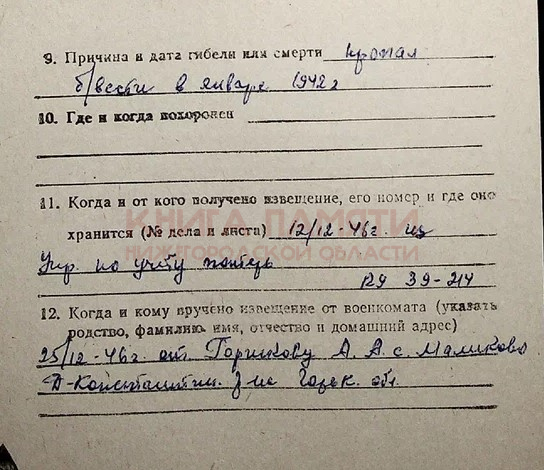 9. Причина и дата гибели или смерти пропал
б/вести в январе 1942 г
10. Где и когда похоронен
11. Когда и от кого получено извещение, его номер и где оно
хранится (№ дела и листа) 12/12-46г. из
КНИГА ПАМЯТИ
НИЖЕГОРОДСКОЙ ОБЛАСТИ
Упр. по учёту потерь
39-214
12. Когда и кому вручено извещение от военкомата (указать
родство, фамилию, имя, отчество и домашний адрес)
25/12-46г. от. Горшкову А. А. с. Маликово
Д-Константин. Горьк. обл